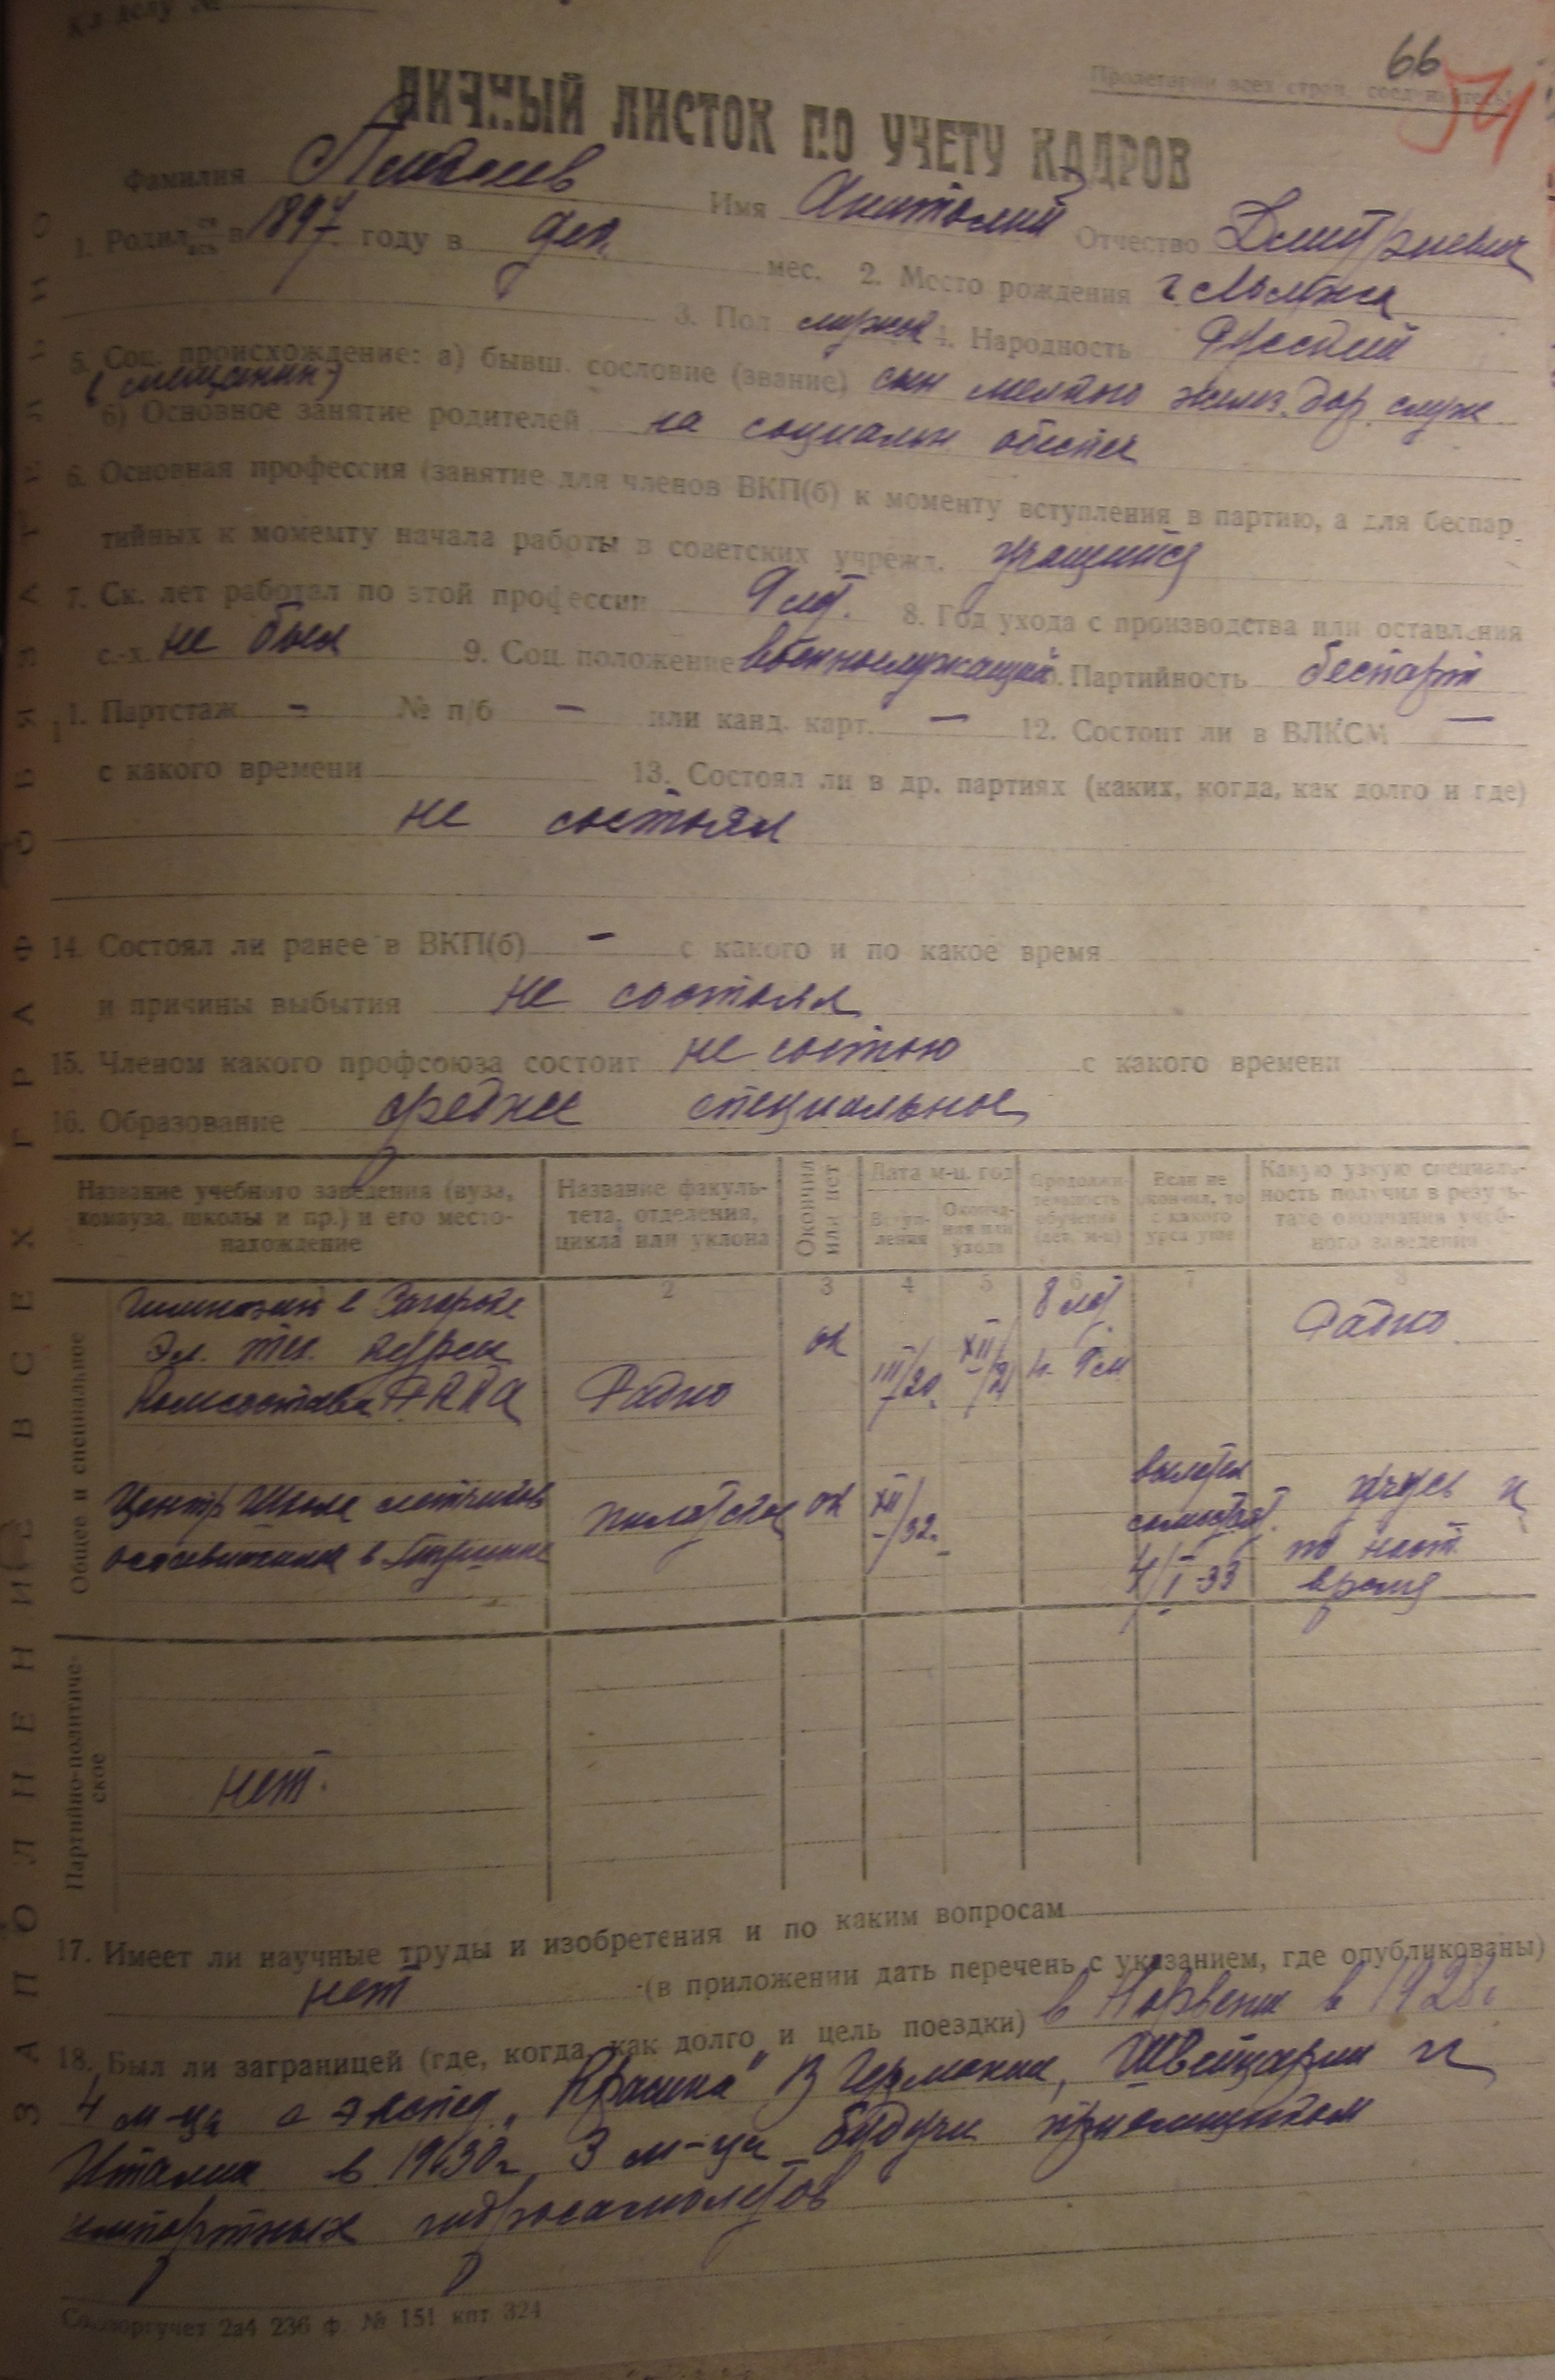 К л. делу №
66
Пролетарии всех стран, соединяйтесь!
ЛИЧНЫЙ ЛИСТОК ПО УЧЕТУ КАДРОВ
Фамилия Имя Анатолий Отчество Дмитриевич
1. Родил ся ась в 1897 году в дек. мес. 2. Место рождения г.
3. Пол мужск 4. Народность Русский
5. Соц. происхождение: а) бывш. сословие (звание) сын мелкого желез. дор. служ
(мещанин)
б) Основное занятие родителей на социальн. обеспеч
6. Основная профессия (занятие для членов ВКП(б) к моменту вступления в партию, а для беспар-
тийных к моменту начала работы в советских учрежд. учащийся
7. Ск. лет работал по этой профессии лет. 8. Год ухода с производства или оставления
с.-х. не был 9. Соц. положение военнослужащий 10. Партийность беспарт
11. Партстаж - № п/б - или канд. карт. - 12. Состоит ли в ВЛКСМ -
с какого времени 13. Состоял ли в др. партиях (каких, когда, как долго и где)
не состоял
14. Состоял ли ранее в ВКП(б) - с какого и по какое время
и причины выбытия не состоял
15. Членом какого профсоюза состоит не состою с какого времени
16. Образование среднее специальное
Название учебного заведения (вуза, комвуза, школы и пр.) и его место-нахождение
Название факуль-тета, отделения, цикла или уклона
Окончил или нет
Дата м-ц. год
Вступ-ления
Оконча-ния или ухода
Продолжи-тельность обучения (лет, м-ц)
Если не окончил, то с какого курса ушел
Какую узкую специаль-ность получил в резуль-тате окончания учеб-ного заведения
2 3 4 5 6 7 8
Общее и специальное
Гимназия в Загорске 8 лет
Эл. тех. курсы ок III/20 XII/21 Радио
Комсостава РККА Радио
Центр Школа летчиков пилотское ок XII/32 вылетел самостоят. 4/I-33 учусь и по наст. время
Партийно-политиче-ское
нет.
17. Имеет ли научные труды и изобретения и по каким вопросам
нет (в приложении дать перечень с указанием, где опубликованы)
18. Был ли заграницей (где, когда, как долго и цель поездки) в Норвегии в 1928г
4 м-ца с экспед. „Красина" В Германии, Швейцарии и
Италии в 1930г 3 м-ца будучи приемщиком
импортных гидросамолетов
ф. № 151 кпт 324
ЗАПОЛНЕНИЕ ВСЕХ ГРАФ ОБЯЗАТЕЛЬНО